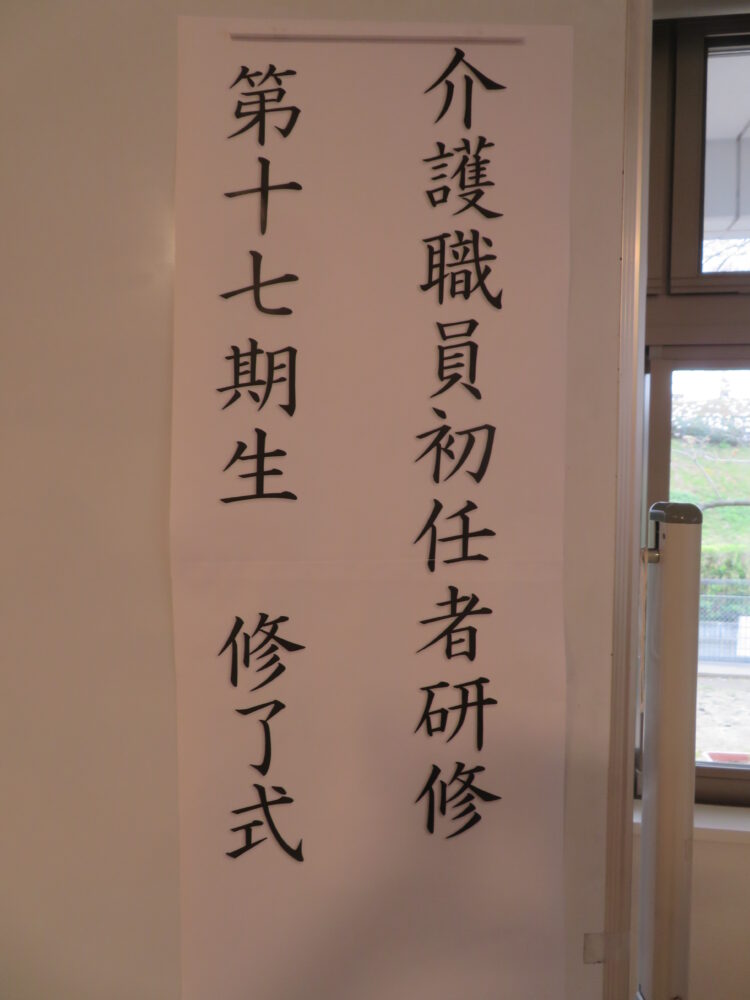 介護職員初任者研修
第十七期生　修了式